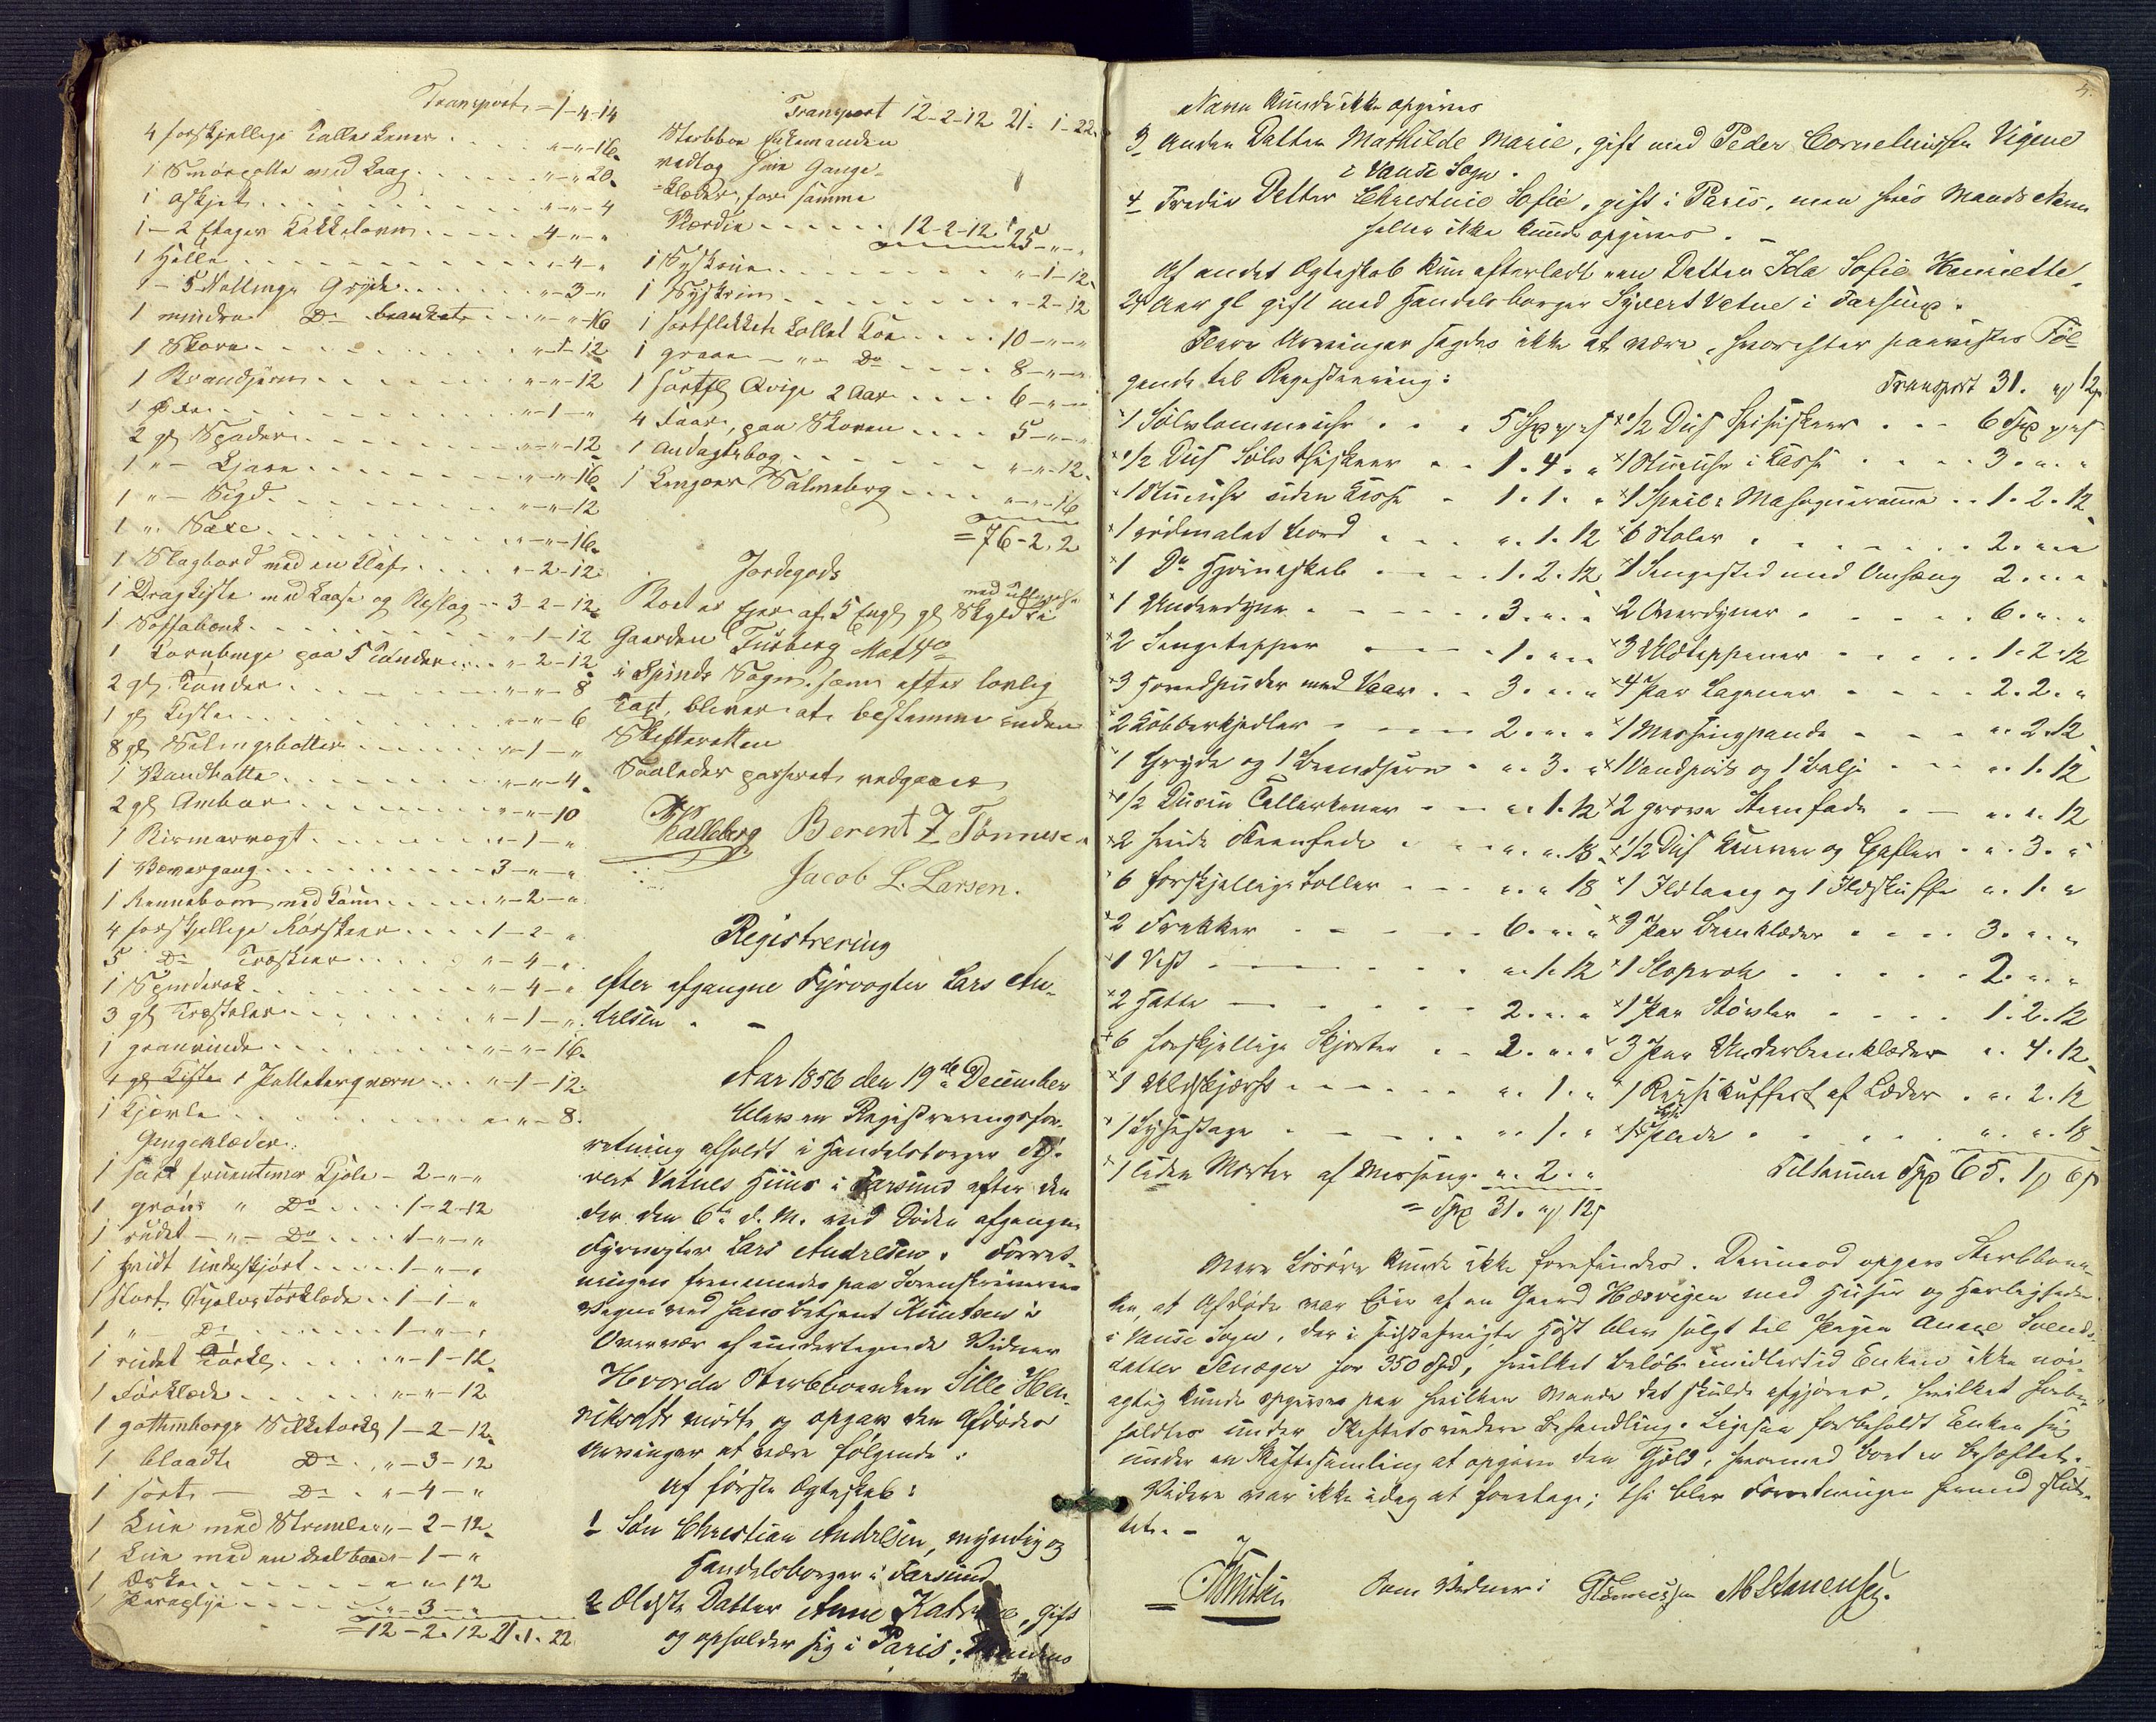 Transport = 1-4-14
4 forskjellige Tallerkener . . . "-"-16
1 Smørcolle med Laag . . . "-"-20
1 Askjet . . . "-"-4
1 - 2 Etages Kakkelovn . . . 4-"-"
1 Helle . . . "-4-"
1 - 5 Nottings Gryde . . . "-3-"
1 mindre Do brænket . . . "-"-16
1 Skore . . . "-1-12
1 Brandjern . . . "-"-12
1 Øxe . . . "-1-"
2 gl Spader . . . "-"-12
1 "- Ljaae . . . "-"-16
1 "- Sigd . . . "-"-12
1 " Saxe . . . "-"-16
1 Slagbord med en Klaf . . . "-2-12
1 Dragkiste med Laase og Beslag . . 3-2-12
1 Soffabænk . . . "-1-12
1 Kornbinge paa 5 Tønder . . . "-2-12
2 gl. Tønder . . . "-"-8
1 gl Kiste . . . "-"-6
8 gl Melingsbøtter . . . "-1-"
1 Vandbøtte . . . "-"-4
2 gl Ambar . . . "-"-10
1 Bismervægt . . . "-1-"
1 Vævergang . . . 3-"-"
1 Rennebom med Kam . . . "-2-"
4 forskjellige Rørskeer . . . 1-2-"
5 Do Træskeer . . . "-4-"
1 Spinderok . . . "-4-"
3 gl Træstoler . . . "-1-"
1 garnvinde . . . "-"-16
1 gl Kiste 1 Palleterqværn . . . "-1-12
1 Kjævle . . . "-"-8
Gangklæder:
1 sort fruentimer Kjole - 2-"-"
1 grøn " Do . . . 1-2-12
1 rudet -"- Do . . . 1-"-"
1 hvidt Underskjørt . . . 1-"-"
1 stort Kjoletørklæde . . 1-1-"
1 "- Do . . . 1-"-"
1 rudet Tørkl . . . "-1-12
1 Forklæde . . . "-"-12
1 gothenborgs Silketørkl 1-2-12
1 blaadt Do . . "-3-12
1 sort - Do . "-4-"
1 Lue med Strimler "-2-12
1 Lue med en Deel baand 1-"
1 Æske . . . "-"-12
1 Paraply . . . "-3-"
= 12-2-12 21. 1. 22
Transport 12-2-12 21- 1-22
Sterbboe Enkemanden
vedtog sine Gang-
=klæder, for samme
Værdie . . . 12-2-12 25-"-"
1 Syskrin . . . "-1-12
1 Syskrin . . . "-2-12
1 sortflekket kollet Koe . . . 10-"-"
1 graae - " - Do . . . 8-"-"
1 sortfl Qvige 2 Aar . . . 6-"-"
4 Faar, paa Skoven . . . 5-"-"
1 Andagtsbog . . . "-"-12
1 Kingoes Salmebog . . . "-"-16
= 76-2. 2
Jordegods
Boet er Ejer af 5 Engl gl Skyld i
Gaarden Tuïberg Mat No
i Spinds Sogn, som efter lovlig
Taxt, bliver at bestemme inden
Skifteretten
Saaledes passeret vedgaaes
Kalleberg Berent Z Tønnese
Jacob L. Larsen.
Registrering
efter afgangne Fyrvogter Lars An-
dresen . -
Aar 1856 den 19de December
blev en Registreringsfor-
retning afholdt i Handelsborger Sy-
vert Vatnes Huus i Farsund efter den
der den 6te d. M. ved Døden afgangne
Fyrvogter Lars Andresen. Forret-
ningen fremmedes paa Sorenskriverens
Vegne ved hans Betjent Knutsen i
Overvær af undertegnede Vidner
Hvorda Sterbboenken Sille Hen-
riksdtr mødte og opgav den Afdødes
Arvinger at være følgende:
af første Ægteskab:
1 Søn Christian Andresen, myndig og
Handelsborger i Farsund
2 Ældste Datter Anne Katrine, gift
og opholder sig i Paris; Mandens
5.
Navn kunde ikke opgives
3 Anden Datter Mathilde Marie, gift med Peder Corneliussen Vigene
i Vanse Sogn.
4 Tredie Datter Chrestine Sofie, gift i Paris, men hvis Mands Navn
heller ikke kunde opgives. -
Af andet Ægteskab kun efterladt een Datter Ida Sofie Henriette,
24 Aar gl gift med Handelsborger Syvert Vatne i Farsund.
Flere Arvinger sagdes ikke at være, hvorefter paavistes Føl-
gende til Registrering:
Transport 31. " 12
×1 Sølvlommeuhr . . . 5 Spd " " ×1/2 Dus Spiseskeer . . . 6 Spd " "
×1/2 Dus Sølv Theskeer . . 1. 4. " ×1 Stueuhr i Kasse . . . 3. ". "
×1 Stueuhr uden Kasse . 1. 1. " ×1 Speil i Mahognirame . . 1. 2. 12
×1 rødmalet Bord . . . ". 1. 12 ×6 Stoler . . . 2. " "
×1 Do Hjørneskab . . . 1. 2. 12 ×1 Sengested med Omhæng 2. " "
×1 Underdyne . . . 3. ". " ×2 Overdyner . . . 6. ". "
×2 Sengetepper . . . 1. " " ×3 Uldteppener . . . 1. 2. 12
×3 Hovedpuder med Vaar . . 3. " " ×4 Par Lagener . . . 2. 2. "
×2 Kobberkjedler . . . 2. ". " ×1 Messingpande . . . ". 2. 12
×1 Gryde og 1 Brandjern . ". 3. " ×1 Vandspand og 1 Balje . . ". 1. 12
×1/2 Dusin Tallerkener . . ". 1. 12 ×2 grove Steenfade . . ". ". 12
×2 hvide Steenfade . . ". ". 18 ×1/2 Dus Knive og Gafler . ". 3. "
×6 forskjellige Boller . . ". " 18 ×1 Ildtang og 1 Ildskuffe ". 1. "
×2 Frakker . . . 6. ". " ×3 Par Beenklæder . . . 3. ". "
×1 Vest . . . ". 1. 12 ×1 Sloprok . . . 2. ". "
×2 Hatte . . . 2. ". " ×1 Par Støvler . . . 1. 2. 12
×6 forskjellige Skjorter . . 2. ". " ×3 Par Underbeenklæder ". 4. 12
×1 Uldskjørt . . . ". 1. " ×1 Reisekuffert af Læder . ". 2. 12
×1 Lysestage . . . ". 1. " ×1 Plade . . . ". ". 18
×1 liden Morter af Messing . ". 2. " Tilsammen Spd 65. 1 6
= Spd 31. " 12
Mere Løsøre kunde ikke forefindes. Derimod opgav Sterbboen-
ken, at Afdøde var Eier af en Gaard Hæsvigen med Huse og Herligheder
i Vanse Sogn, der i sidstafvigte Høst blev solgt til Pigen Anne Svends-
datter for 350 Spd, hvilket Beløb imidlertid Enken ikke nøi-
agtig kunde opgives paa hvilken Maade det skulde afgjøres, hvilket forbe-
holdtes under Skiftets videre Behandling. Ligesaa forbeholdt Enken sig
under en Skiftesamling at opgive den Gjæld, hvormed Boet er behæftet.
Videre var ikke idag at foretage; thi blev Forretningen hermed slut-
tet. -
Knutsen Som Vidner: